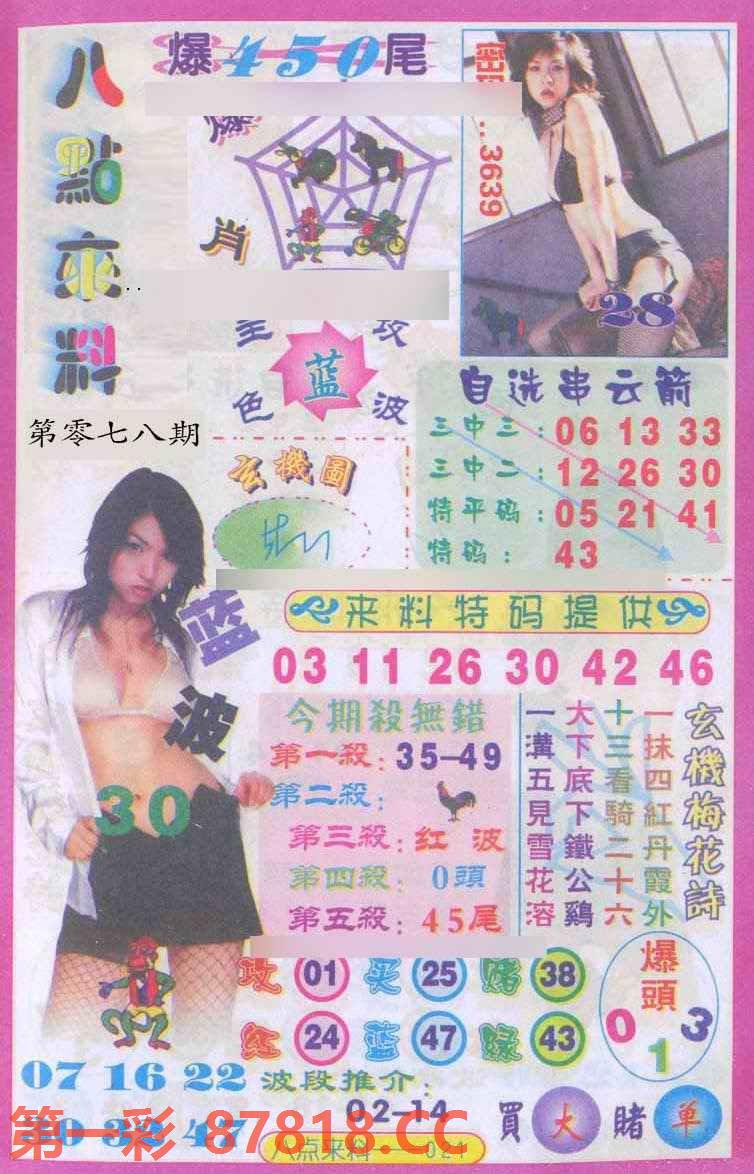 八點來料
爆450尾
爆
肖
3639
28
主攻
蓝
色波
第零七八期
玄機圖
自选串云箭
三中三：06 13 33
三中二：12 26 30
特平码：05 21 41
特码：43
来料特码提供
03 11 26 30 42 46
蓝波
30
今期殺無錯
第一殺：35-49
第二殺：
第三殺：红波
第四殺：0頭
第五殺：45尾
玄機梅花詩
一抹四紅丹霞外
十三看騎二十六
大下底下鐵公鷄
一溝五見雪花溶
攻 01 买 25 赌 38
红 24 蓝 47 绿 43
爆頭
0 1 3
07 16 22
波段推介：
02-14
買大賭单
第一彩 87818.CC
八点来料